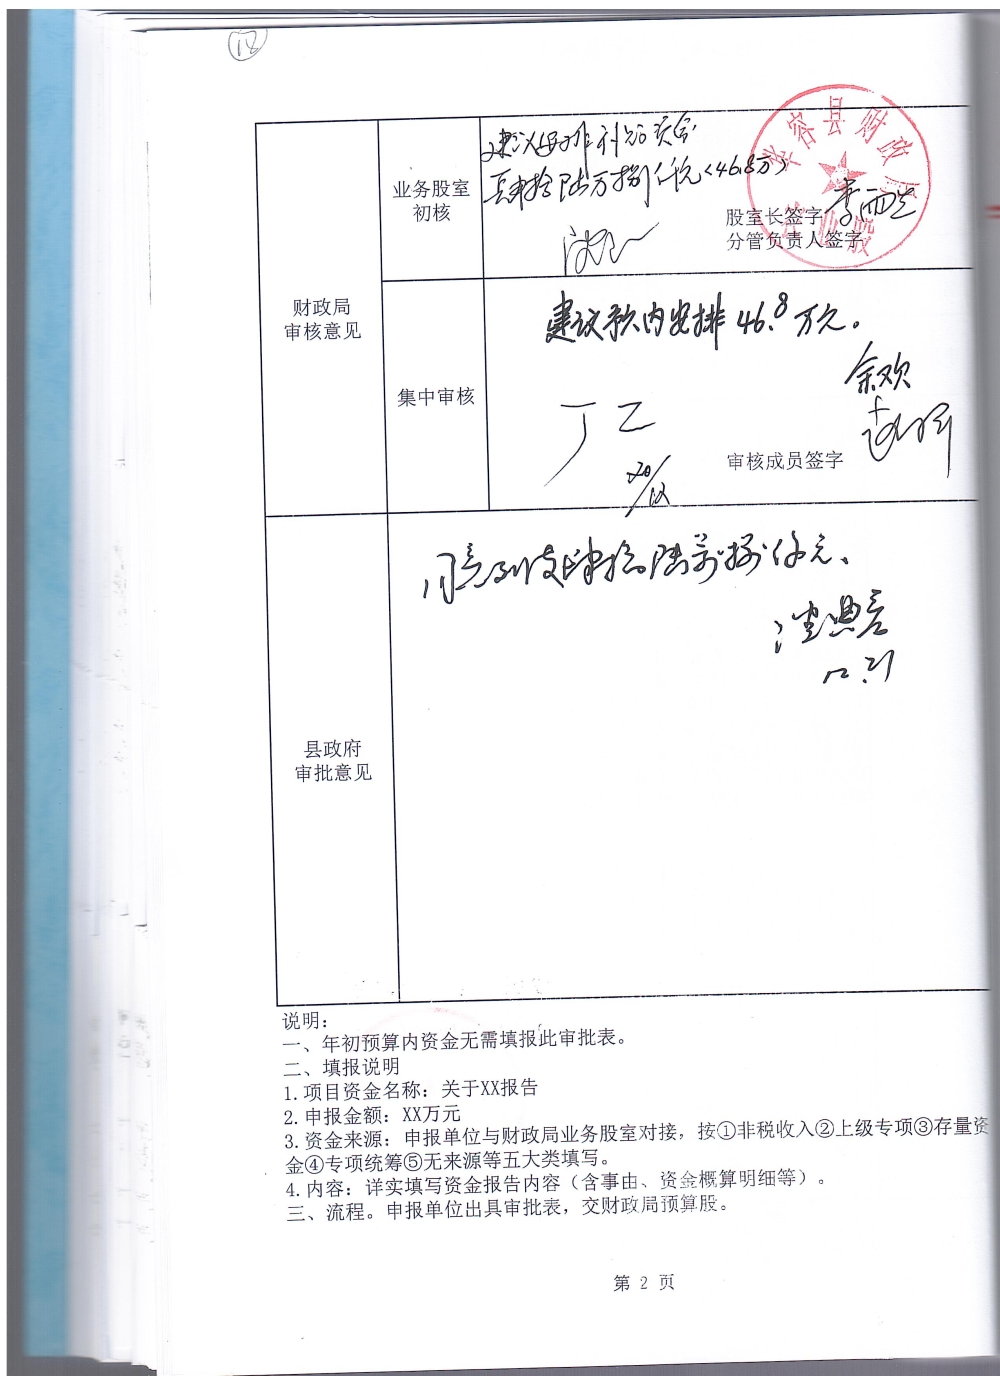 12
华容县财政局
企业股
业务股室
初核
建议安排补贴资金
肆拾陆万捌仟元(46.8万)
股室长签字
分管负责人签字
财政局
审核意见
集中审核
建议预内安排46.8万元。
余欢
丁乙
审核成员签字
20/12
县政府
审批意见
同意列支肆拾陆万捌仟元、
12.21
说明:
一、年初预算内资金无需填报此审批表。
二、填报说明
1.项目资金名称: 关于XX报告
2.申报金额: XX万元
3.资金来源: 申报单位与财政局业务股室对接, 按①非税收入②上级专项③存量资
金④专项统筹⑤无来源等五大类填写。
4.内容: 详实填写资金报告内容(含事由、资金概算明细等)。
三、流程。申报单位出具审批表, 交财政局预算股。
第 2 页